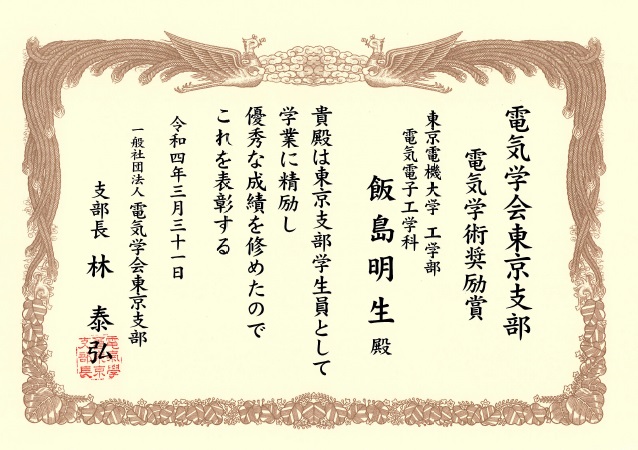 電気学会東京支部
電気学術奨励賞
東京電機大学 工学部
電気電子工学科
飯島明生 殿
貴殿は東京支部学生員として
学業に精励し
優秀な成績を修めたので
これを表彰する
令和四年三月三十一日
一般社団法人 電気学会東京支部
支部長 林 泰弘